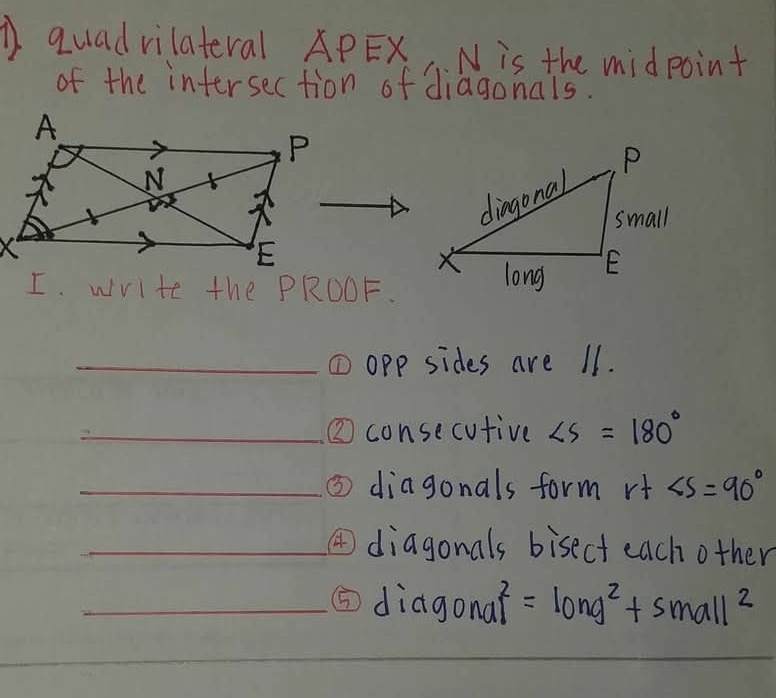 1) quadrilateral APEX, N is the midpoint
of the intersection of diagonals.
A
P
N
X
E
P
diagonal
small
X
long
E
I. Write the PROOF.
① opp sides are //.
② consecutive <s = 180°
③ diagonals form rt <s = 90°
④ diagonals bisect each other
⑤ diagonal² = long² + small²